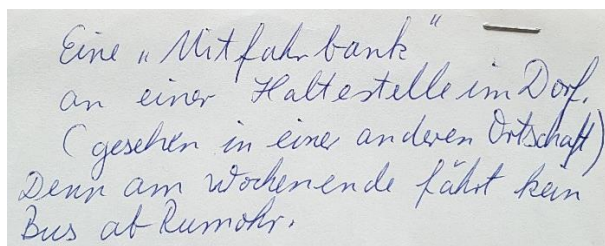 Eine „Mitfahrbank"
an einer Haltestelle im Dorf.
(gesehen in einer anderen Ortschaft)
Denn am Wochenende fährt kein
Bus ab Rumohr.